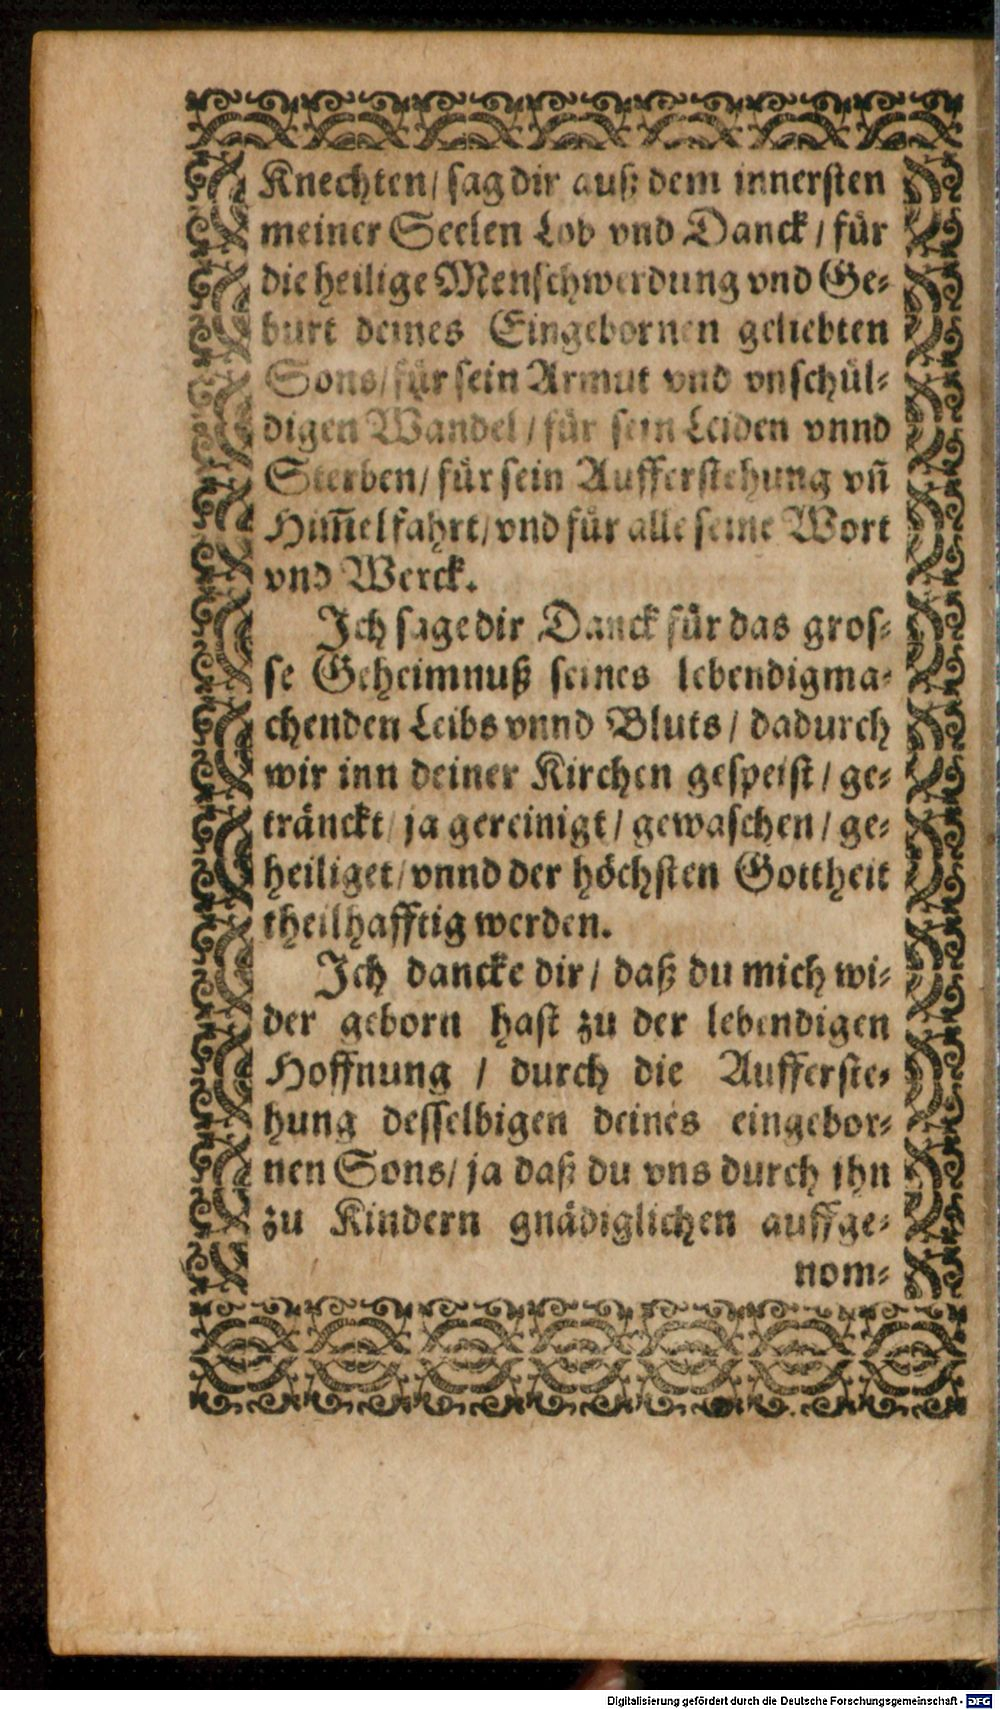 Knechten/ sag dir auß dem innersten
meiner Seelen Lob vnd Danck / für
die heilige Menschwerdung vnd Ge-
burt deines Eingebornen geliebten
Sons/ für sein Armut vnd vnschül-
digen Wandel / für sein Leiden vnnd
Sterben/ für sein Aufferstehung vñ
Him̃elfahrt/ vnd für alle seine Wort
vnd Werck.
Ich sage dir Danck für das gros-
se Geheimnuß seines lebendigma-
chenden Leibs vnnd Bluts / dadurch
wir inn deiner Kirchen gespeist / ge-
tränckt / ja gereinigt / gewaschen / ge-
heiliget / vnnd der höchsten Gottheit
theilhafftig werden.
Ich dancke dir / daß du mich wi-
der geborn hast zu der lebendigen
Hoffnung / durch die Aufferste-
hung desselbigen deines eingebor-
nen Sons/ ja daß du vns durch ihn
zu Kindern gnädiglichen auffge-
nom-
Digitalisierung gefördert durch die Deutsche Forschungsgemeinschaft - DFG